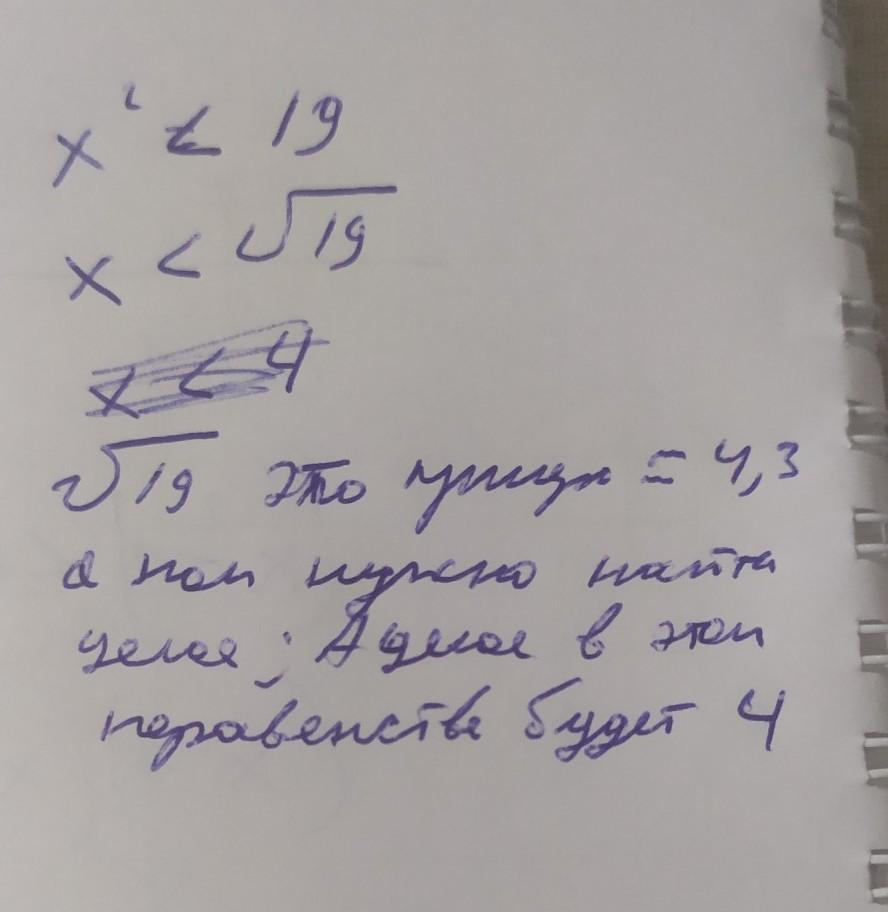 x² < 19
x < √19
x < 4
√19 это = 4,3
а нам нужно найти
целое; А целое в этом
неравенстве будет 4